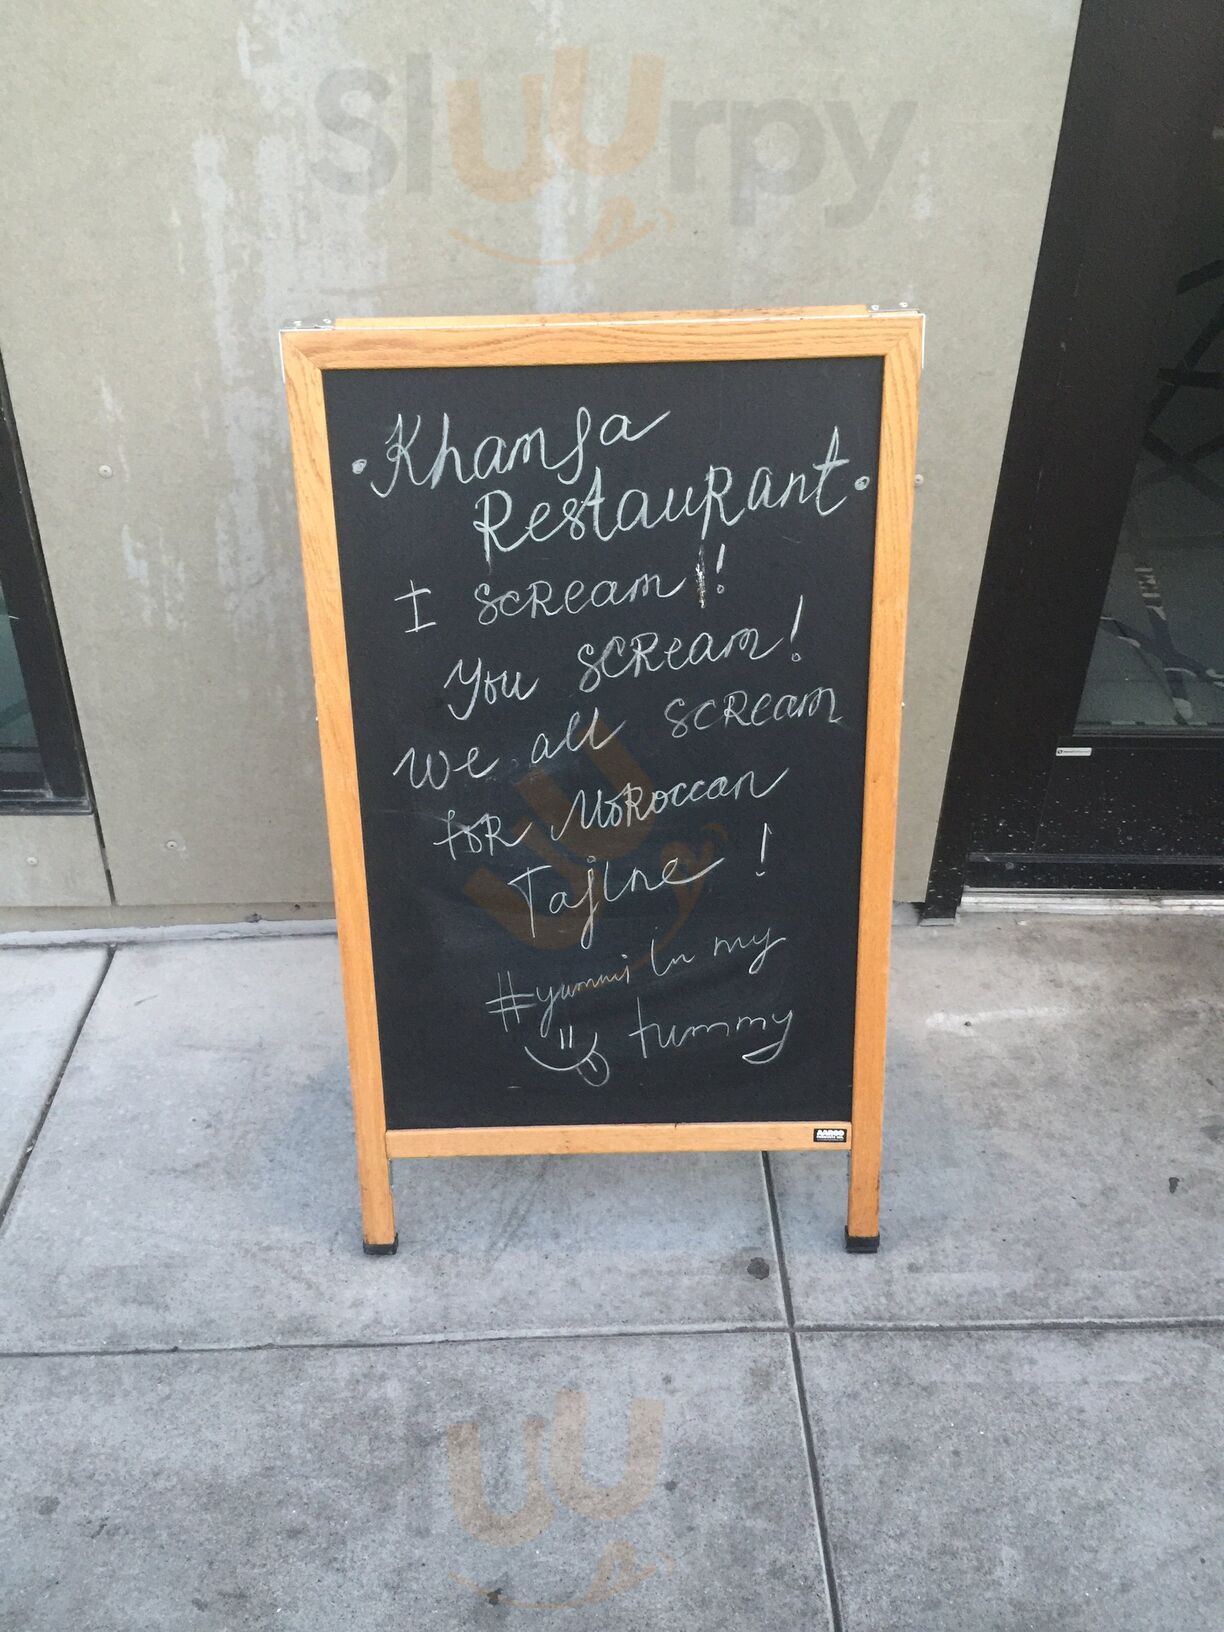 Sluurpy
• Khamsa
Restaurant •
I scream !
You scream!
we all scream
for Moroccan
Tajine !
#yummi in my
tummy
AARCO